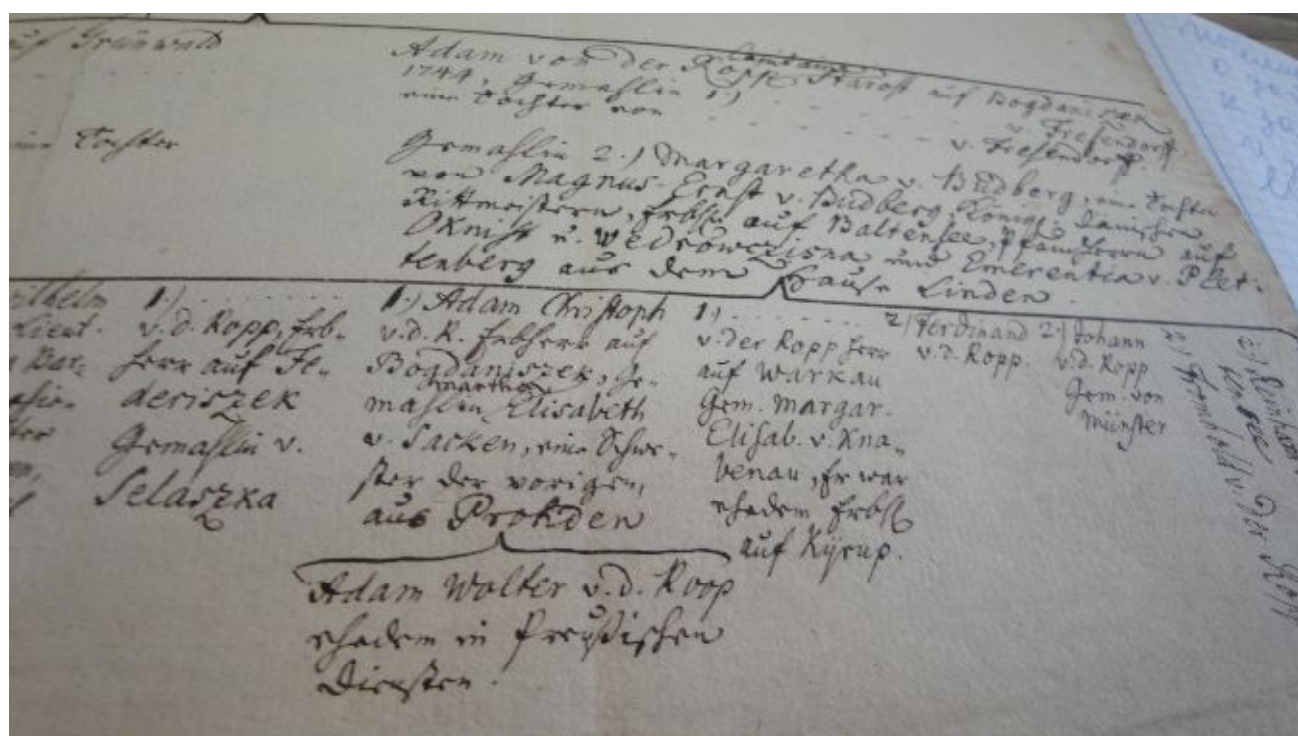 auf Grünwald
Tochter
Adam von der Ropp, Starost auf Bogdaniszek
1744, Gemahlin 1.)
eine Tochter von - - - v. Fresendorff
v. Fresendorff.
Gemahlin 2.) Margaretha v. Budberg, eine Tochter
von Magnus Ernst v. Budberg, Königl. Dänischen
Rittmeistern, Erbh. auf Baltensee, Pfandherrn auf
Oknist u. Wedrowczisna und Emerentia v. Plet-
tenberg aus dem Hause Linden.
wilhelm
Lieut.
Bar-
1.) . . . . . . .
v. d. Ropp, Erb-
herr auf Fe-
deriszek
Gemahlin v.
Selaszka
1.) Adam Christoph
v. d. R. Erbherr auf
Bogdaniszek, Ge-
Martha
mahlin Elisabeth
v. Sacken, eine Schwe-
ster der vorigen,
aus Prohden
1. . . . . . . .
v. der Ropp Herr
auf Warkau
Gem. Margar-
Elisab. v. Kna-
benau, Er war
ehedem Erbh
auf Kyrup.
2.) Ferdinand
v. d. Ropp.
2.) Johann
v. d. Ropp
Gem. von
Münster
2.) Fromhold v. der Ropp
2.) Reinhard
Adam Wolter v. d. Roop
ehedem in Preußischen
Diensten.